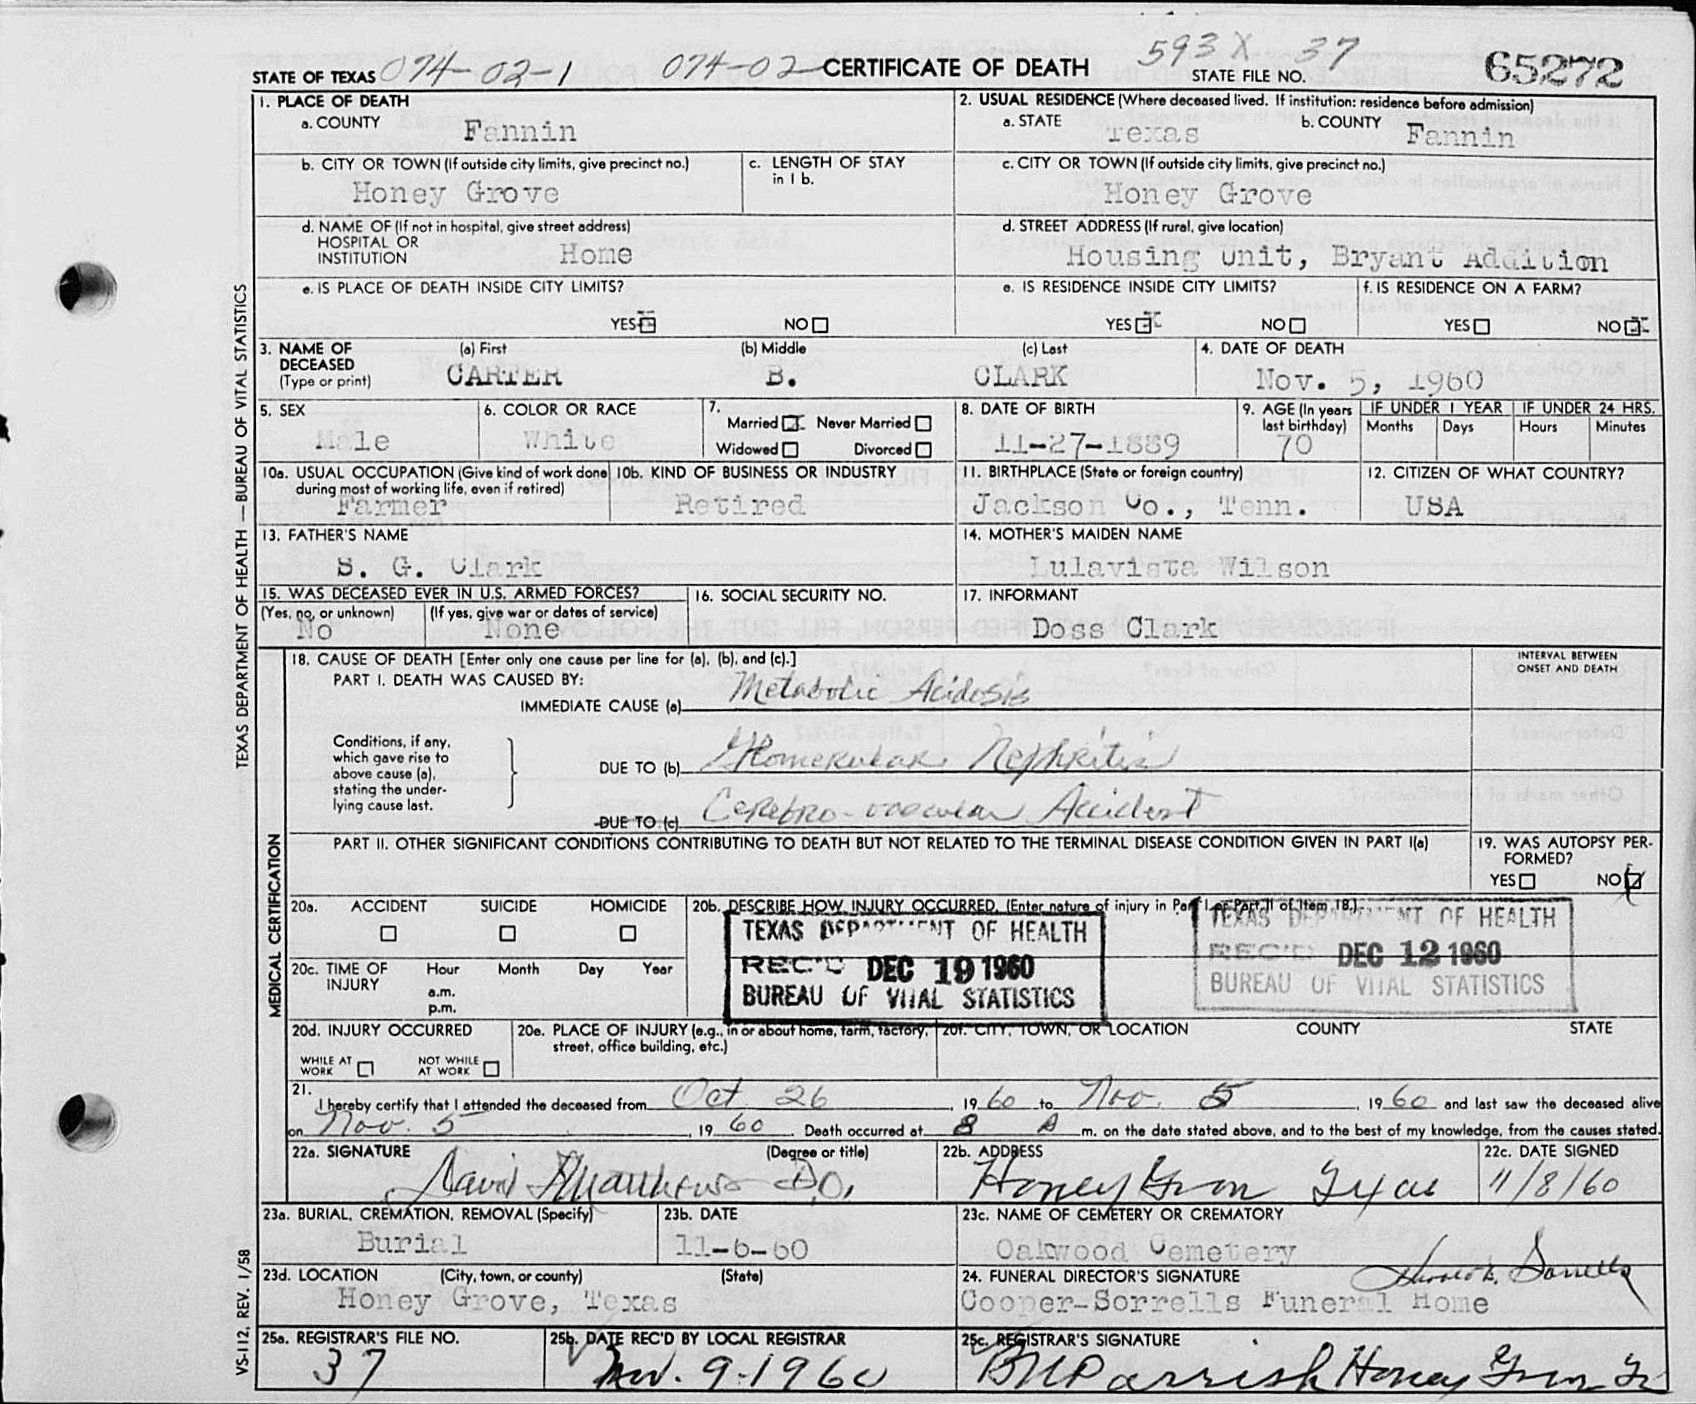 593 X 37
STATE OF TEXAS 074-02-1 074-02 CERTIFICATE OF DEATH STATE FILE NO. 65272
1. PLACE OF DEATH
a. COUNTY Fannin
2. USUAL RESIDENCE (Where deceased lived. If institution: residence before admission)
a. STATE Texas b. COUNTY Fannin
b. CITY OR TOWN (If outside city limits, give precinct no.)
Honey Grove
c. LENGTH OF STAY
in 1 b.
c. CITY OR TOWN (If outside city limits, give precinct no.)
Honey Grove
d. NAME OF (If not in hospital, give street address)
HOSPITAL OR
INSTITUTION Home
d. STREET ADDRESS (If rural, give location)
Housing Unit, Bryant Addition
e. IS PLACE OF DEATH INSIDE CITY LIMITS?
YES NO
e. IS RESIDENCE INSIDE CITY LIMITS?
YES NO
f. IS RESIDENCE ON A FARM?
YES NO
3. NAME OF
DECEASED
(Type or print)
(a) First (b) Middle (c) Last
CARTER B. CLARK
4. DATE OF DEATH
Nov. 5, 1960
5. SEX
Male
6. COLOR OR RACE
White
7.
Married Never Married
Widowed Divorced
8. DATE OF BIRTH
11-27-1889
9. AGE (In years
last birthday)
70
IF UNDER 1 YEAR IF UNDER 24 HRS.
Months Days Hours Minutes
10a. USUAL OCCUPATION (Give kind of work done
during most of working life, even if retired)
Farmer
10b. KIND OF BUSINESS OR INDUSTRY
Retired
11. BIRTHPLACE (State or foreign country)
Jackson Co., Tenn.
12. CITIZEN OF WHAT COUNTRY?
USA
13. FATHER'S NAME
S. G. Clark
14. MOTHER'S MAIDEN NAME
Lulavista Wilson
15. WAS DECEASED EVER IN U.S. ARMED FORCES?
(Yes, no, or unknown) (If yes, give war or dates of service)
No None
16. SOCIAL SECURITY NO.
17. INFORMANT
Doss Clark
18. CAUSE OF DEATH [Enter only one cause per line for (a), (b), and (c).]
INTERVAL BETWEEN
ONSET AND DEATH
PART I. DEATH WAS CAUSED BY:
IMMEDIATE CAUSE (a) Metabolic Acidosis
Conditions, if any,
which gave rise to
above cause (a),
stating the under-
lying cause last.
DUE TO (b) Glomerular Nephritis
DUE TO (c) Cerebro-vascular Accident
PART II. OTHER SIGNIFICANT CONDITIONS CONTRIBUTING TO DEATH BUT NOT RELATED TO THE TERMINAL DISEASE CONDITION GIVEN IN PART I(a)
19. WAS AUTOPSY PER-
FORMED?
YES NO
20a. ACCIDENT SUICIDE HOMICIDE
20b. DESCRIBE HOW INJURY OCCURRED. (Enter nature of injury in Part I or Part II of Item 18.)
TEXAS DEPARTMENT OF HEALTH
REC'D DEC 19 1960
BUREAU OF VITAL STATISTICS
TEXAS DEPARTMENT OF HEALTH
REC'D DEC 12 1960
BUREAU OF VITAL STATISTICS
20c. TIME OF
INJURY
Hour Month Day Year
a.m.
p.m.
20d. INJURY OCCURRED
WHILE AT
WORK
NOT WHILE
AT WORK
20e. PLACE OF INJURY (e.g., in or about home, farm, factory,
street, office building, etc.)
20f. CITY, TOWN, OR LOCATION COUNTY STATE
21.
I hereby certify that I attended the deceased from Oct 26, 1960 to Nov. 5, 1960 and last saw the deceased alive
on Nov. 5, 1960. Death occurred at 8 A m. on the date stated above, and to the best of my knowledge, from the causes stated.
22a. SIGNATURE (Degree or title)
David Matthews D.O.
22b. ADDRESS
Honey Grove Texas
22c. DATE SIGNED
11/8/60
23a. BURIAL, CREMATION, REMOVAL (Specify)
Burial
23b. DATE
11-6-60
23c. NAME OF CEMETERY OR CREMATORY
Oakwood Cemetery
23d. LOCATION (City, town, or county) (State)
Honey Grove, Texas
24. FUNERAL DIRECTOR'S SIGNATURE
Sorrells
Cooper-Sorrells Funeral Home
25a. REGISTRAR'S FILE NO.
37
25b. DATE REC'D BY LOCAL REGISTRAR
Nov. 9-1960
25c. REGISTRAR'S SIGNATURE
BMParrish Honey Grove Tx
TEXAS DEPARTMENT OF HEALTH — BUREAU OF VITAL STATISTICS
MEDICAL CERTIFICATION
VS-112, REV. 1/58